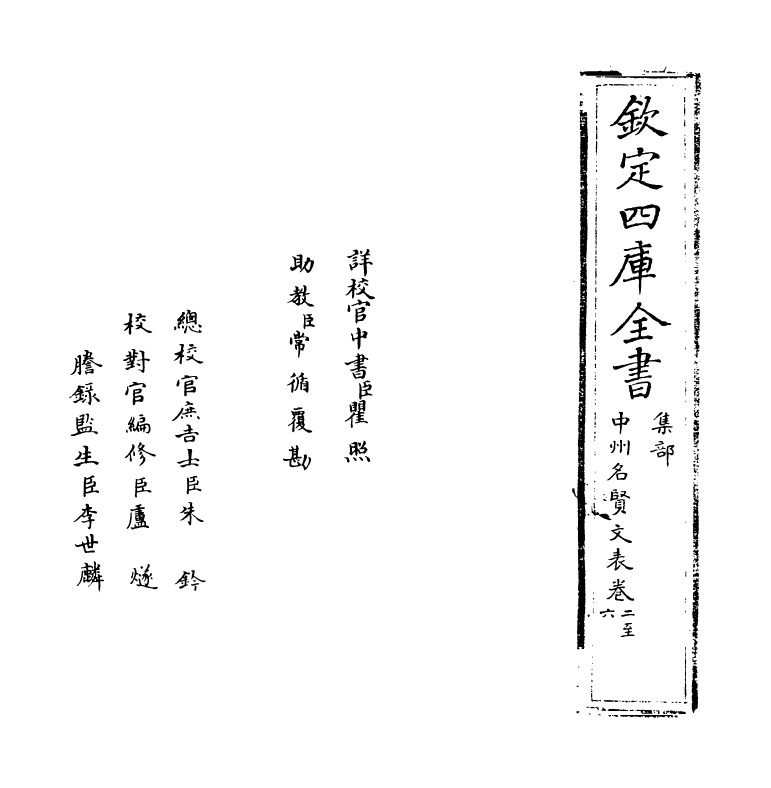 欽定四庫全書
集部
中州名賢文表卷二至六
詳校官中書臣瞿照
助教臣常循覆勘
總校官庶吉士臣朱鈐
校對官編修臣盧燧
謄錄監生臣李世麟